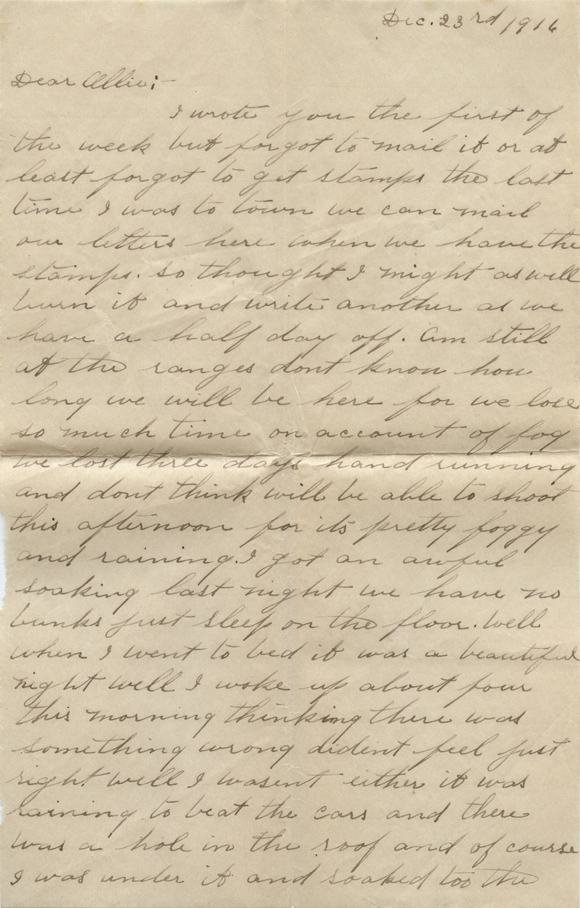 Dec. 23rd 1916
Dear Allie:-
I wrote you the first of
the week but forgot to mail it or at
least forgot to get stamps the last
time I was to town we can mail
our letters here when we have the
stamps. so thought I might as well
burn it and write another as we
have a half day off. Am still
at the ranges dont know how
long we will be here for we lose
so much time on account of fog
we lost three days hand running
and dont think will be able to shoot
this afternoon for its pretty foggy
and raining. I got an awful
soaking last night we have no
bunks just sleep on the floor. Well
when I went to bed it was a beautiful
night well I woke up about four
this morning thinking there was
something wrong dident feel just
right well I wasent either it was
raining to beat the cars and there
was a hole in the roof and of course
I was under it and soaked too the